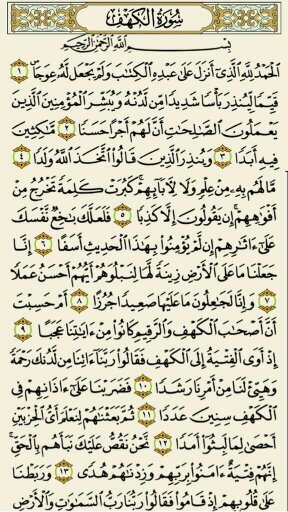 سُورَةُ الكَهْفِ
بِسْمِ اللَّهِ الرَّحْمَٰنِ الرَّحِيمِ
الْحَمْدُ لِلَّهِ الَّذِي أَنزَلَ عَلَىٰ عَبْدِهِ الْكِتَابَ وَلَمْ يَجْعَل لَّهُ عِوَجًا ۜ ١
قَيِّمًا لِّيُنذِرَ بَأْسًا شَدِيدًا مِّن لَّدُنْهُ وَيُبَشِّرَ الْمُؤْمِنِينَ الَّذِينَ
يَعْمَلُونَ الصَّالِحَاتِ أَنَّ لَهُمْ أَجْرًا حَسَنًا ٢ مَّاكِثِينَ
فِيهِ أَبَدًا ٣ وَيُنذِرَ الَّذِينَ قَالُوا اتَّخَذَ اللَّهُ وَلَدًا ٤
مَّا لَهُم بِهِ مِنْ عِلْمٍ وَلَا لِآبَائِهِمْ ۚ كَبُرَتْ كَلِمَةً تَخْرُجُ مِنْ
أَفْوَاهِهِمْ ۚ إِن يَقُولُونَ إِلَّا كَذِبًا ٥ فَلَعَلَّكَ بَاخِعٌ نَّفْسَكَ
عَلَىٰ آثَارِهِمْ إِن لَّمْ يُؤْمِنُوا بِهَٰذَا الْحَدِيثِ أَسَفًا ٦ إِنَّا
جَعَلْنَا مَا عَلَى الْأَرْضِ زِينَةً لَّهَا لِنَبْلُوَهُمْ أَيُّهُمْ أَحْسَنُ عَمَلًا
٧ وَإِنَّا لَجَاعِلُونَ مَا عَلَيْهَا صَعِيدًا جُرُزًا ٨ أَمْ حَسِبْتَ
أَنَّ أَصْحَابَ الْكَهْفِ وَالرَّقِيمِ كَانُوا مِنْ آيَاتِنَا عَجَبًا ٩
إِذْ أَوَى الْفِتْيَةُ إِلَى الْكَهْفِ فَقَالُوا رَبَّنَا آتِنَا مِن لَّدُنكَ رَحْمَةً
وَهَيِّئْ لَنَا مِنْ أَمْرِنَا رَشَدًا ١٠ فَضَرَبْنَا عَلَىٰ آذَانِهِمْ فِي
الْكَهْفِ سِنِينَ عَدَدًا ١١ ثُمَّ بَعَثْنَاهُمْ لِنَعْلَمَ أَيُّ الْحِزْبَيْنِ
أَحْصَىٰ لِمَا لَبِثُوا أَمَدًا ١٢ نَّحْنُ نَقُصُّ عَلَيْكَ نَبَأَهُم بِالْحَقِّ ۚ
إِنَّهُمْ فِتْيَةٌ آمَنُوا بِرَبِّهِمْ وَزِدْنَاهُمْ هُدًى ١٣ وَرَبَطْنَا
عَلَىٰ قُلُوبِهِمْ إِذْ قَامُوا فَقَالُوا رَبُّنَا رَبُّ السَّمَاوَاتِ وَالْأَرْضِ